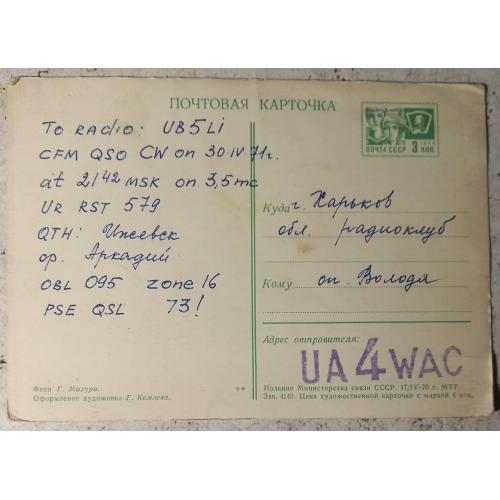 ПОЧТОВАЯ КАРТОЧКА
ПОЧТА СССР 3 КОП.
TO RADIO: UB5LI
CFM QSO CW on 30.IV.71г.
at 2142 MSK on 3,5 mc
UR RST 579
QTH: Ижевск
op. Аркадий
OBL 095 zone 16
PSE QSL 73!
Куда г. Харьков
обл. радиоклуб
Кому оп. Володя
Адрес отправителя:
UA4WAC
Фото Г. Мазура.
Оформление художника Г. Комлева.
**
Издание Министерства связи СССР. 17/IV-70 г. МТГ.
Зак. 4142. Цена художественной карточки с маркой 4 коп.